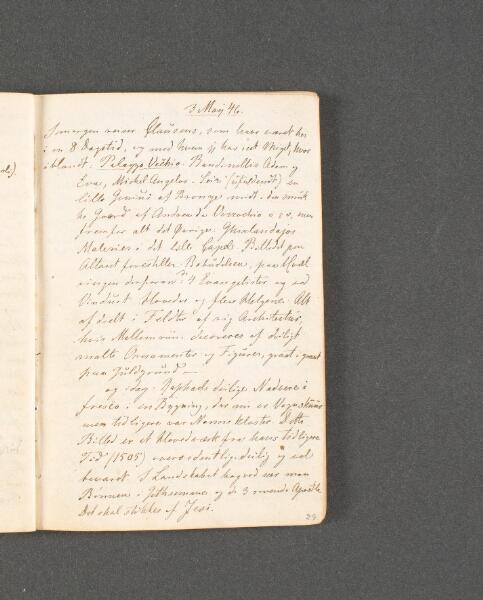 3 Maij 46.
I morgen rejser Clausens, som have været her
i en 8 Dagstid, og med hvem jeg har seet Meget, hvor
iblandt: Palazzo Vechio. Bandinellis Adam og
Eva, Michel Angelos Seir (ufuldendt) en
lille Genius af Bronze midt i den smuk
ke Gaard af Andrea da Verrochio o; s, v, men
fremfor alt det Øvrige: Ghirlandajos
Malerier i det lille Capel. Billedet paa
Alteret forestiller Bebudelsen, paa Hvæl
vingen derforan de 4 Evangelister og ved
Vinduet Hoveder og flere Helgene. Alt
afdeelt i Felter af rig Architectur,
hvis Mellemrum decoreres af deiligt
malte Ornamenter og Figurer, graat i graat
paa Guldgrund —
og idag: Raphaels deilige Nadvere i
fresco i en Bygning, der nu er Vognskuur
men tidligere var Nonnekloster. Dette
Billed er et Hovedværk fra hans tidligere
Tid (1505) overordentlig deiligt og vel
bevaret. I Landskabet bagved seer man
Christus i Gethsemane og de 3 sovende Apostle.
Det skal stikkes af Jesi.
29